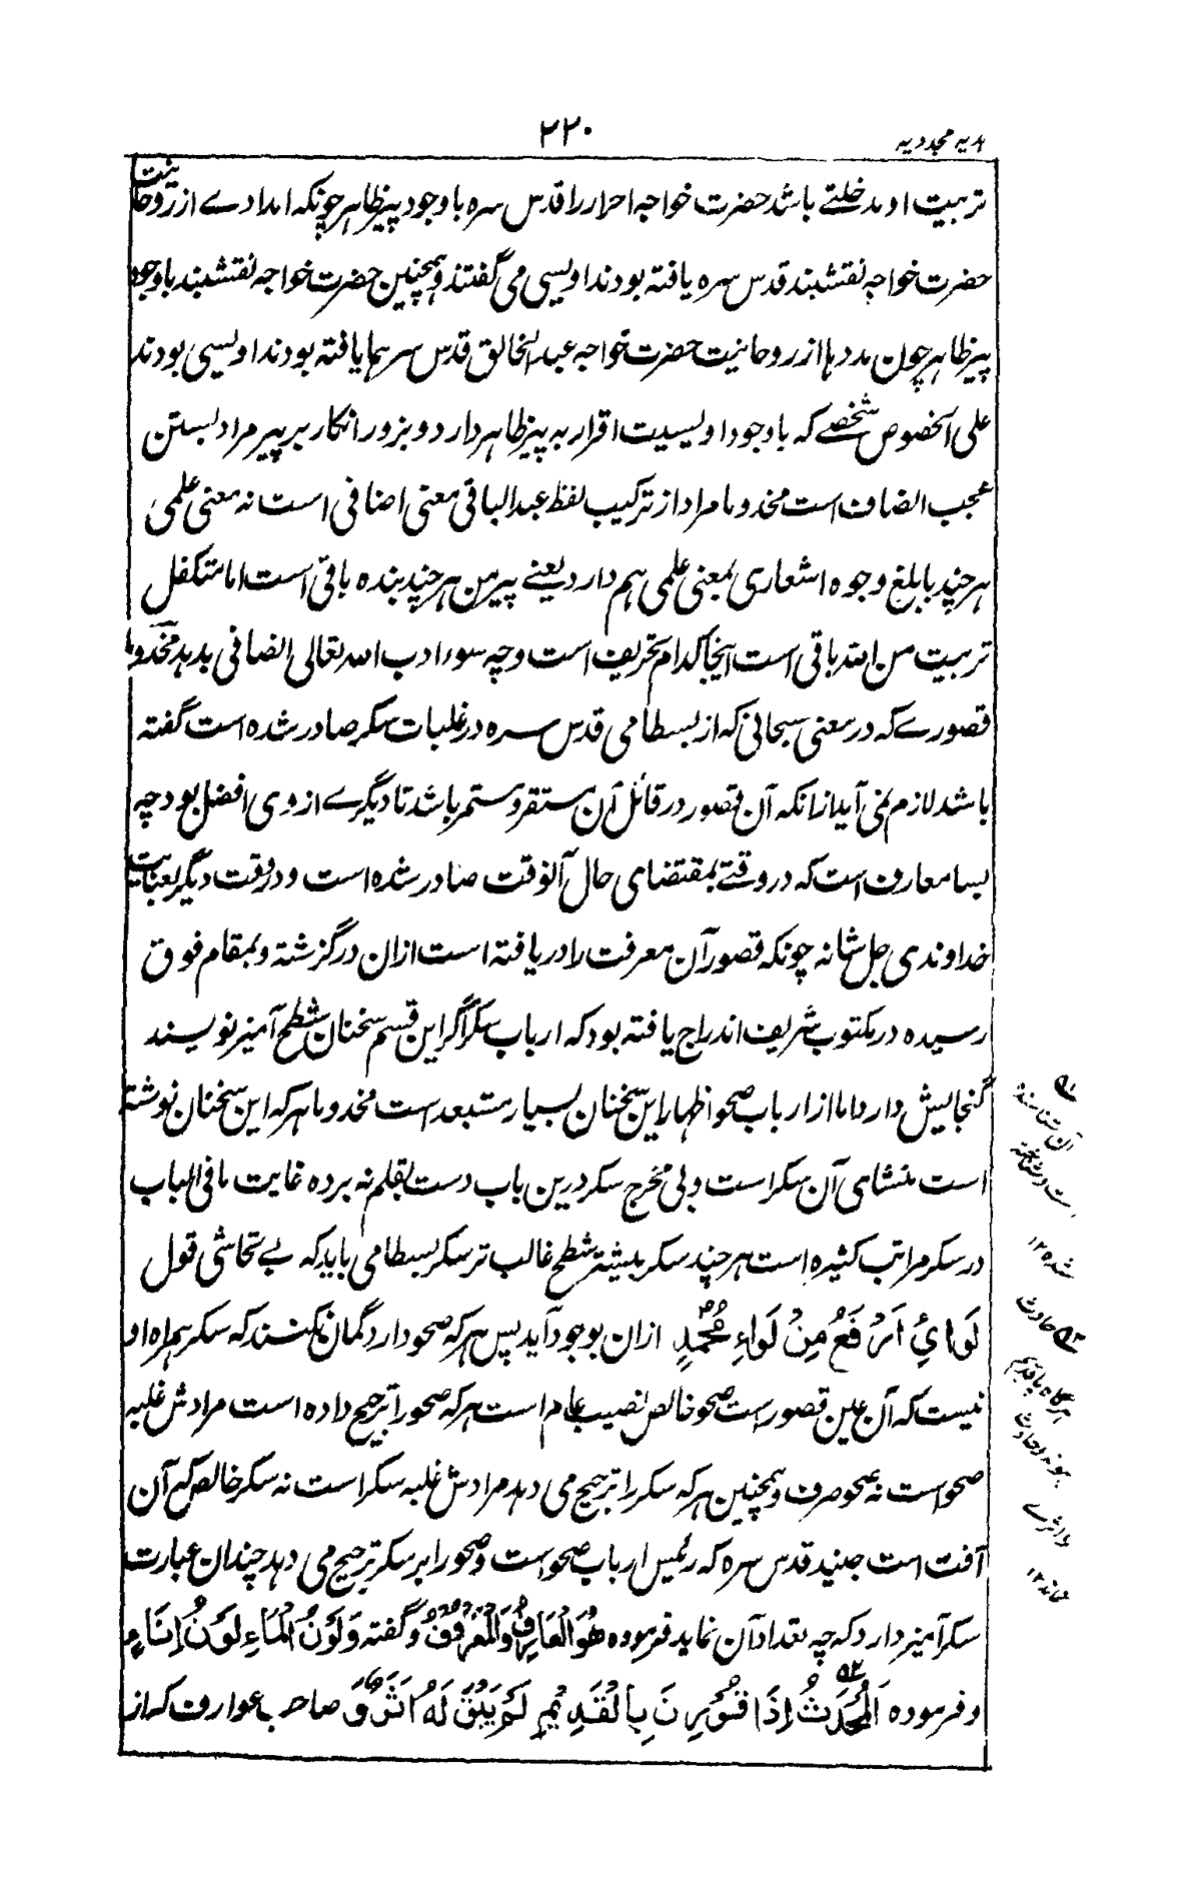 ۲۲۰
مجددیہ
تربیت او مدخلتے باشد حضرت خواجہ احرار را قدس سرہ باوجود پیر ظاہر چونکہ امدادے از روحانیت
حضرت خواجہ نقشبند قدس سرہ یافتہ بودند اویسی می گفتند و ہمچنین حضرت خواجہ نقشبند باوجود
پیر ظاہر چون مددہا از روحانیت حضرت خواجہ عبدالخالق قدس سرہما یافتہ بودند اویسی بودند
علی الخصوص شخصے کہ باوجود اویسیت اقرار بہ پیر ظاہر دارد و بزور انکار بر پیر مراد بستن
عجب انصاف است مخدوما مراد از ترکیب لفظ عبدالباقی معنی اضافی است نہ معنی علمی
ہر چند بابلغ وجوہ اشعاری بمعنی علمی ہم دارد یعنے پیر من ہر چند بندہ باقی است اما متکفل
تربیت من اللہ باقی است اینجا کدام تحریف است و چہ سوء ادب اللہ تعالی انصافی بدہد مخدوما
قصورے کہ در معنی سبحانی کہ از بسطامی قدس سرہ در غلبات سکر صادر شدہ است گفتہ
باشد لازم نمی آید ازانکہ آن قصور در قائل آن مستقر و مستمر باشد تا دیگرے از وی افضل بود چہ
بسا معارف است کہ در وقتے بمقتضای حال آنوقت صادر شدہ است و در وقت دیگر بعنایت
خداوندی جل شانہ چونکہ قصور آن معرفت را دریافتہ است ازان درگزشتہ و بمقام فوق
رسیدہ در مکتوب شریف اندراج یافتہ بود کہ ارباب سکر اگر این قسم سخنان شطح آمیز نویسند
گنجایش دارد اما از ارباب صحو اظہار این سخنان بسیار مستبعد است مخدوما ہر کہ این سخنان نوشتہ
است منشای آن سکر است و بی مخرج سکر درین باب دست بقلم نہ بردہ غایت ما فی الباب
در سکر مراتب کثیرہ است ہر چند سکر بیشتر شطح غالب تر سکر بسطامی باید کہ بے تحاشی قول
لَوَائِیْ اَرْفَعُ مِنْ لَوَاءِ مُحَمَّدٍ ازان بوجود آید پس ہر کہ صحو دارد گمان نکنند کہ سکر ہمراہ او
نیست کہ آن عین قصور است صحو خالص نصیب عام است ہر کہ صحو را ترجیح دادہ است مرادش غلبہ
صحو است نہ صحو صرف و ہمچنین ہر کہ سکر را ترجیح می دہد مرادش غلبہ سکر است نہ سکر خالص کہ آن
آفت است جنید قدس سرہ کہ رئیس ارباب صحو است و صحو را بر سکر ترجیح می دہد چندان عبارت
سکر آمیز دارد کہ چہ تعداد آن نماید فرمودہ ھُوَ الْعَارِفُ وَالْمَعْرُوْفُ و گفتہ وَلَوْنُ الْمَاءِ لَوْنُ اِنَاءِہٖ
و فرمودہ اَلْمُحْدَثُ اِذَا قُوْرِنَ بِالْقَدِیْمِ لَمْ یَبْقَ لَہٗ اَثَرٌ وَ صاحب عوارف کہ از
شدہ ۱۲
حادث
ہرگاہ با قدیم
اثرے
نماند ۱۲